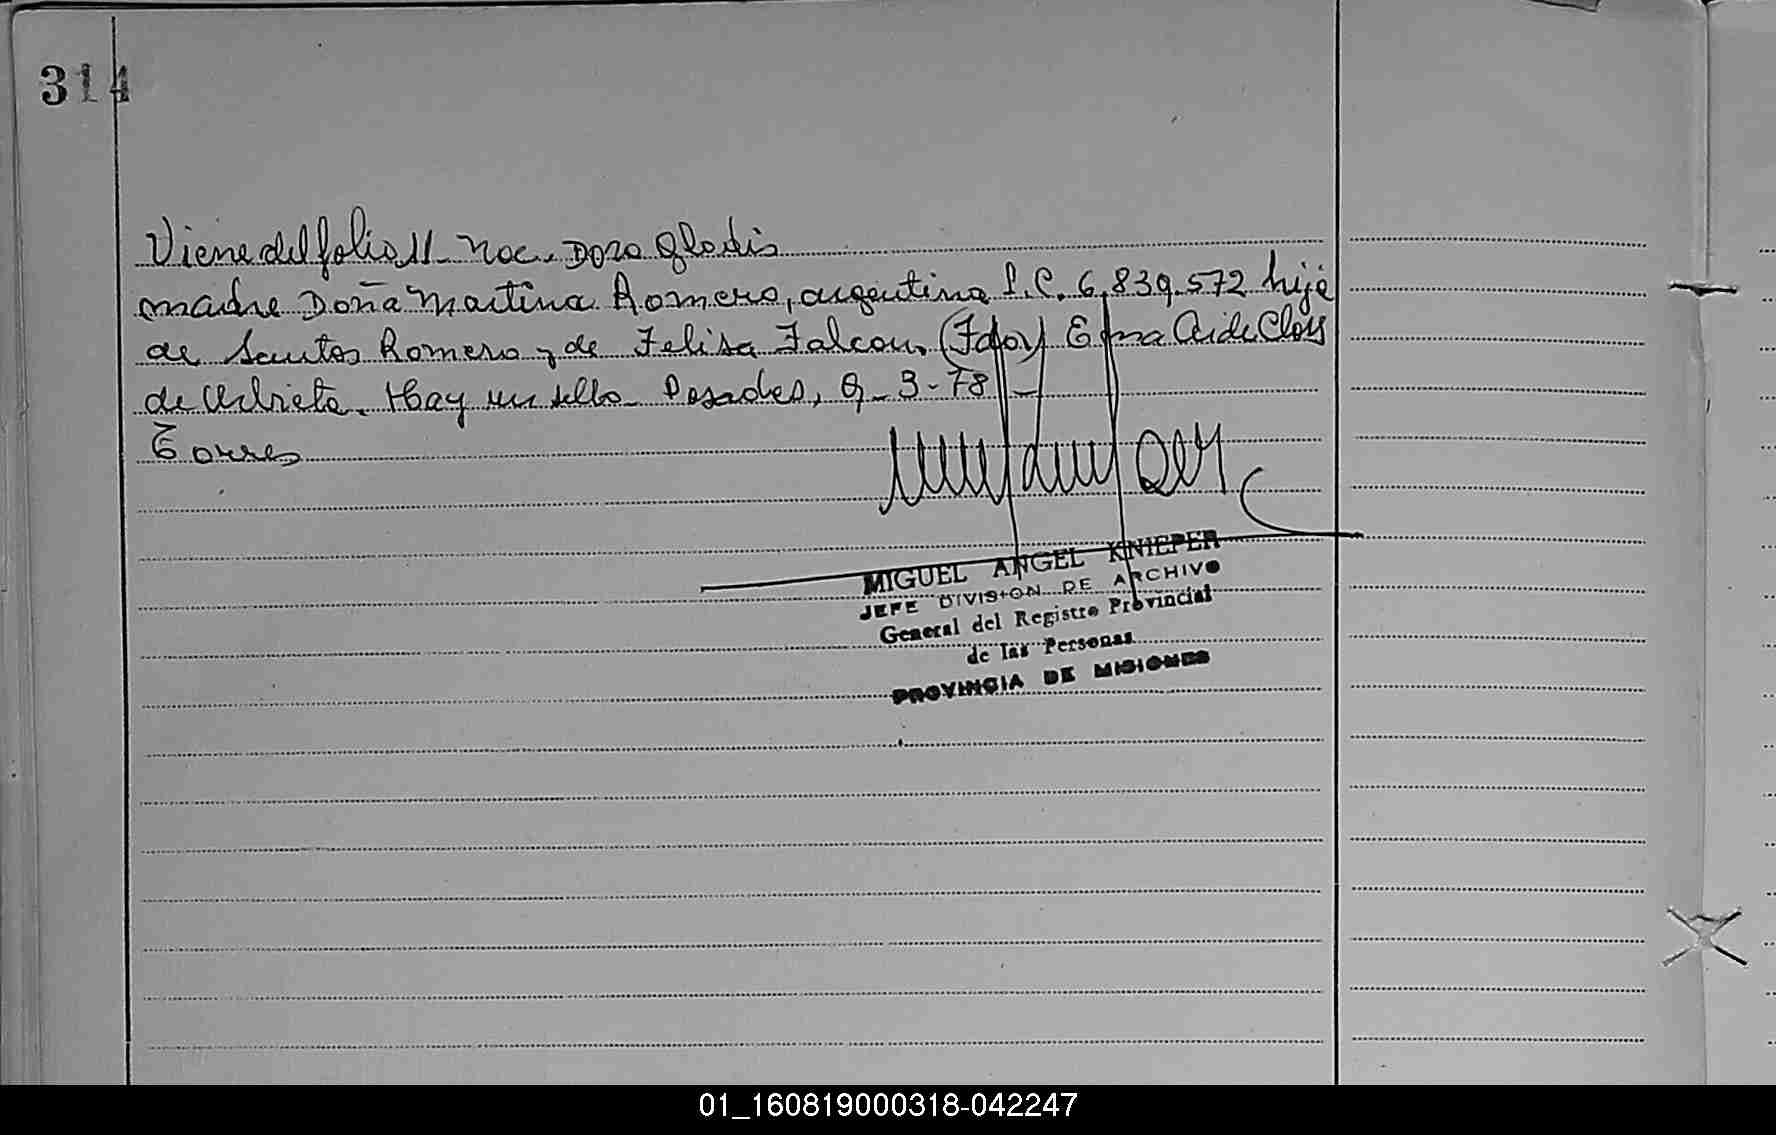 314
Viene del folio 11 - Nac. Dora Gladis
madre Doña Martina Romero, argentina L.C. 6.839.572 hija
de Santos Romero y de Felisa Falcon, (Fdo) Edna Aide Clos
de Urbieta. Hay un sello - Posadas, 9-3-78 -
Torres
MIGUEL ANGEL KNIEPER
JEFE DIVISION DE ARCHIVO
General del Registro Provincial
de las Personas
PROVINCIA DE MISIONES
01_160819000318-042247